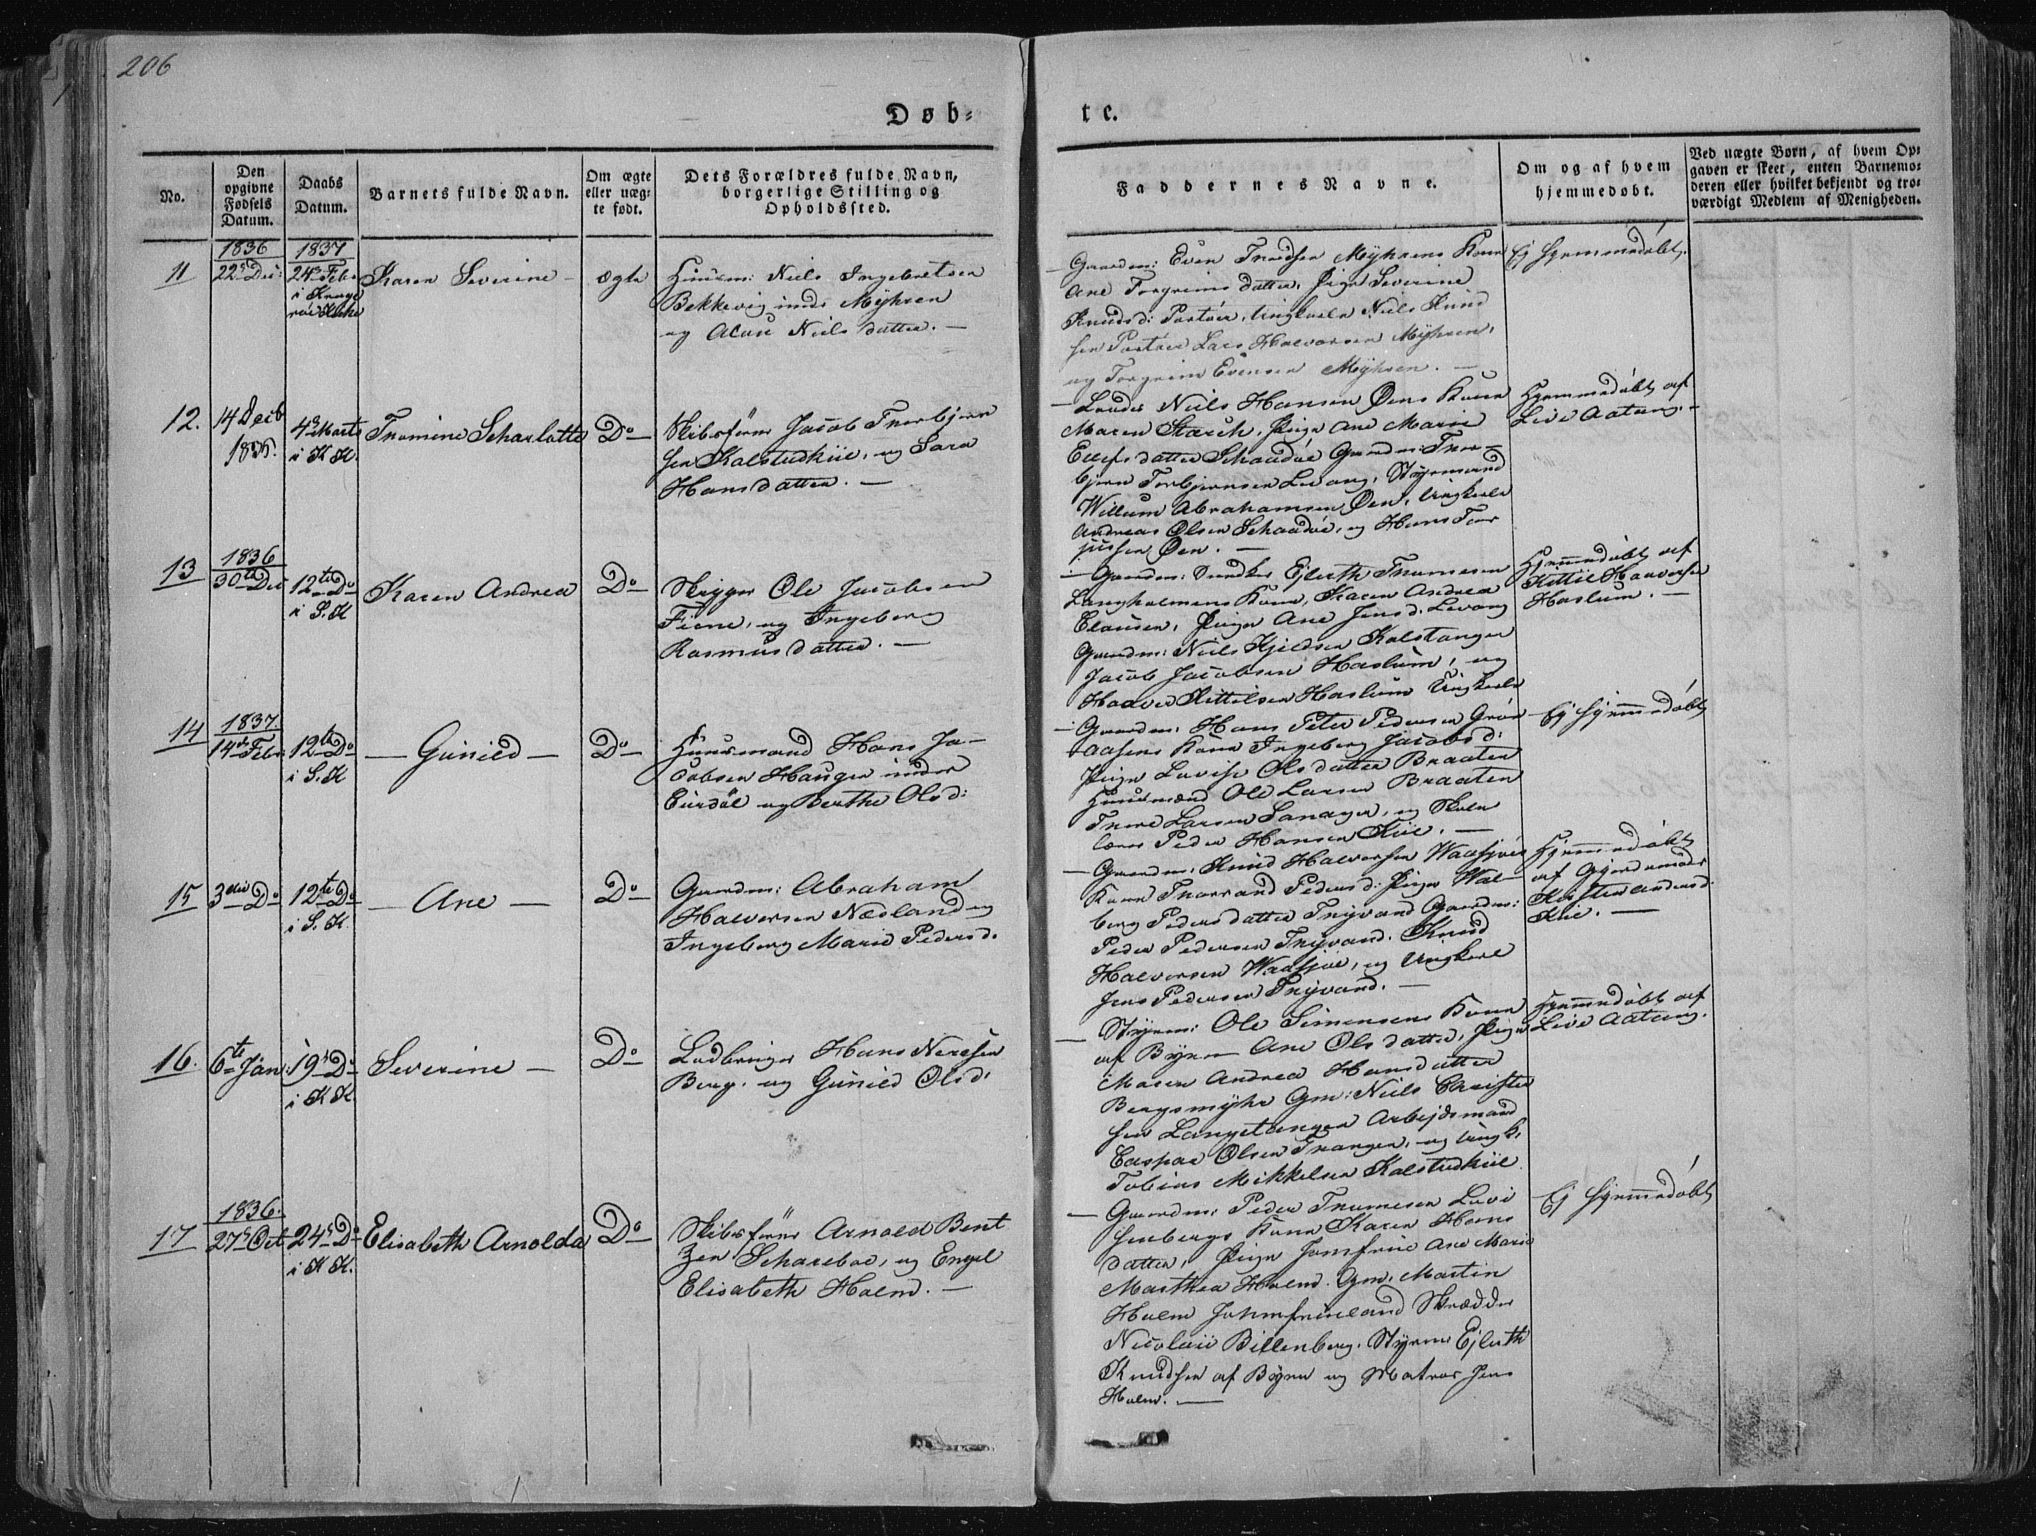 206
Døb-
te.
No.
Den
opgivne
Fødsels
Datum.
Daabs
Datum.
Barnets fulde Navn.
Om ægte
eller uæg-
te født.
Dets Forældres fulde Navn,
borgerlige Stilling og
Opholdssted.
Faddernes Navne.
Om og af hvem
hjemmedøbt.
Ved uægte Børn, af hvem Op-
gaven er skeet, enten Barnemo-
deren eller hvilket bekjendt og tro-
værdigt Medlem af Menigheden.
11
1836
22 Dec:
1837
24 Febr
i Krage
röe Kirke
Karen Severine –
ægte
Huusm: Niels Ingebretsen
Bekkevig und: Mÿhren
og Niels datter. –
Gaardm: Even Mÿhrens Kone
Ane Torgrims datter, Pige Severine
Knudsd: Portöer, Ungkarle Niels Knud
sen Portöer Lars Halvorsen Mÿhren,
og Torgrim Evensen Mÿhren. –
Ej hjemmedöbt.
12.
14 Decb
4 Marts
i K K.
Thomine Scharlotte
Do
Skibsförer Jacob Thorbjörn
sen Kalstadkiil, og Sara
Hansdatter. –
Niels Hansen Öens Kone
Maren Starch, Pige Ane Marie
datter Gaardm: Thor-
björn Torbjörnsen Levang, Styrmand
Willum Abrahamsen Öen, Ungkarle
Andreas Olsen og Hans Tor
jussen Öen. –
Hjemmedöbt af
Live Aatang. –
13
1836
30te Dec
12te Do
i S. K
Karen Andrea
Do
Skipper Ole Jacobsen
Fiane, og Ingeborg
Rasmus datter. –
Gaardm: Ejleth Thomesen
Langholmens Kone, Karen Andrea
Clausen, Pige Ane Jens d. Levang
Gaardm: Niels Kjeldsen Kalstangen
Jacob Jacobsen Haslum, og
Haavor Kittilsen Haslum Ungkarle
Hjemmedöbt af
Kittil Haavorsen
Haslum. –
14
1837.
14de Febr
12te Do
i S. K
– Gunild –
Do
Huusmand Hans Ja-
cobsen Haugen under
og Berthe Olsd:
Gaardm: Hans Peter Pedersen Grön
aasens Kone Ingeborg Jacobsd:
Pige Lovise Olsdatter Braaten
Huusmænd Ole Larsen Braaten
Thore Larsen og Skole
lærer Peder Hansen Kiil. –
Ej hjemmedöbt
15
3die Do
12te Do
i S. K.
– Ane –
Do
Gaardm: Abraham
Halvorsen Nædland og
Ingeborg Marie Pedersd.
Gaardm: Knud Halvorsen Waasjöes
Kone Thorrand Pedersd: Pige Wal-
borg Pedersdatter Trÿvand Gaardm:
Peder Pedersen Trÿvand. Knud
Halvorsen Waasjöe, og Ungkarl
Jens Pedersen Trÿvand. –
Hjemmedöbt
af Gjordemoder
Kirsten Andersd.
Kiil. –
16.
6te Jan:
19 Do
i K K.
Severine –
Do
Hans Nielsen
Berg. og Gunild Olsd:
Styrm: Ole Simonsens Kone
af Byen – Ane Olsdatter, Pige
Maren Andrea Hansdatter
Bergsmÿhr Gm: Niels Christen
sen Langetangen Arbejdsmand
Caspar Olsen Tangen, og Ungk.
Tobias Mikkelsen Kalstadkiil
Hjemmedöbt af
Live Aatang.
17
1836.
27 Oct
24 Do
i K K.
Elisabeth Arnolda
Do
Skibsförer Arnold Bent
zen og Engel
Elisabeth Holm. –
Gaardm: Peder Thomesen Lovi
senbergs Kone Karen Hans
datter, Pige Jomfrue Ane Marie
Marthea Holm. Gm. Martin
Holm Jomfrueland Skrædder
Nicolai Billenberg, Styrm: Ejleth
Knudsen af Byen og Matros Jens
Holm. –
Ej hjemmedöbt